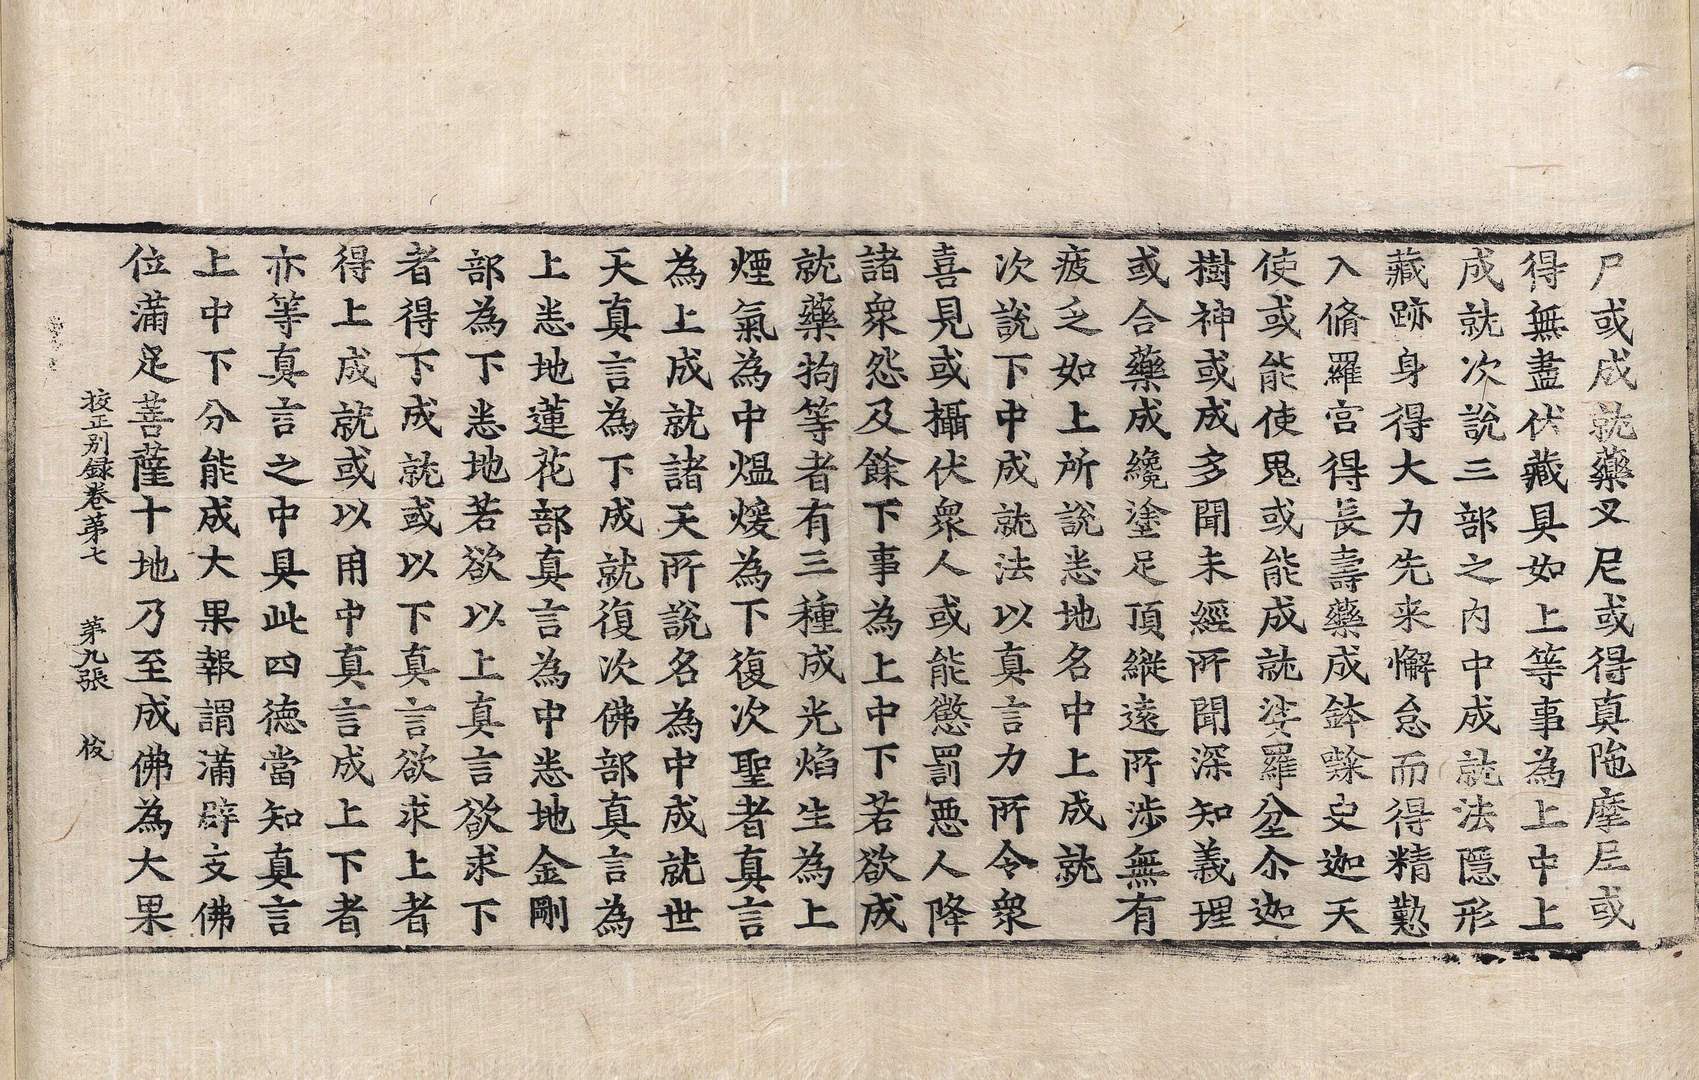 尸或成就藥叉尼或得真陁摩尼或
得無盡伏藏具如上等事為上中上
成就次說三部之內中成就法隱形
藏跡身得大力先来懈怠而得精懃
入脩羅宮得長壽藥成鉢史迦天
使或能使鬼或能成就娑羅坌尒迦
樹神或成多聞未經所聞深知義理
或合藥成纔塗足頂縱遠所涉無有
疲乏如上所說悉地名中上成就
次說下中成就法以真言力所令衆
喜見或攝伏衆人或能懲罰惡人降
諸衆怨及餘下事為上中下若欲成
就藥物等者有三種成光焰生為上
煙氣為中熅煖為下復次聖者真言
為上成就諸天所說名為中成就世
天真言為下成就復次佛部真言為
上悉地蓮花部真言為中悉地金剛
部為下悉地若欲以上真言欲求下
者得下成就或以下真言欲求上者
得上成就或以用中真言成上下者
亦等真言之中具此四德當知真言
上中下分能成大果報謂滿辟支佛
位滿足菩薩十地乃至成佛為大果
校正別録卷第七 第九張 俊